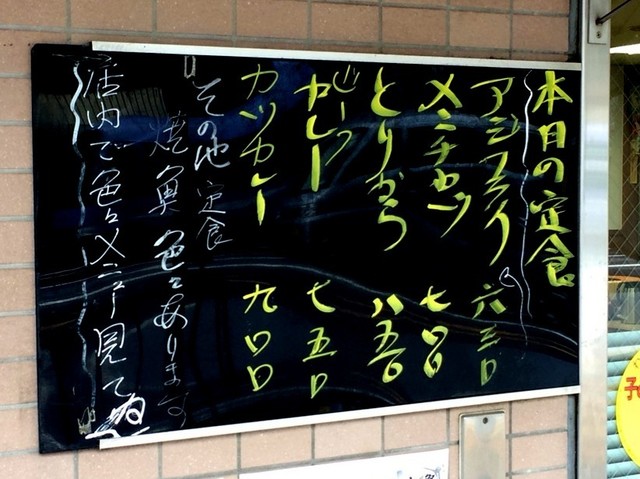 本日の定食
アジフライ 六三〇
メンチカツ 七〇〇
とりから 八五〇
ビーフカレー 七五〇
カツカレー 九〇〇
その他 定食
焼魚 色々あります
店内で色々メニュー見てね